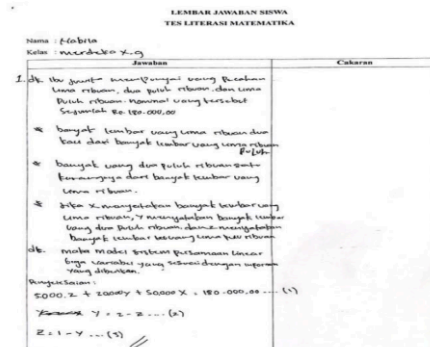 LEMBAR JAWABAN SISWA
TES LITERASI MATEMATIKA
Nama : Nabila
Kelas : merdeka X.9
Jawaban
Cakaran
1. dk. Ibu Juwit mempunyai uang Pecahan
lima ribuan, dua puluh ribuan, dan lima
Puluh ribuan. nominal uang tersebut
Sejumlah Rp. 180.000,00
* banyak lembar uang lima ribuan dua
kali dari banyak lembar uang lima ribuan
puluh
* banyak uang dua puluh ribuan satu
kurangnya dari banyak lembar uang
lima ribuan.
* Jika X menyatakan banyak lembar uang
lima ribuan, Y menyatakan banyak lembar
uang dua puluh ribuan, dan z menyatakan
banyak lembar uang lima puluh ribuan
dit. maka model sistem persamaan linear
tiga variabel yang sesuai dengan
yang diberikan.
Penyelesaian :
5000.Z + 20000y + 50.000 X = 180.000,00 .... (1)
Y = 2 - Z .... (2)
Z = 1 - Y ... (3)